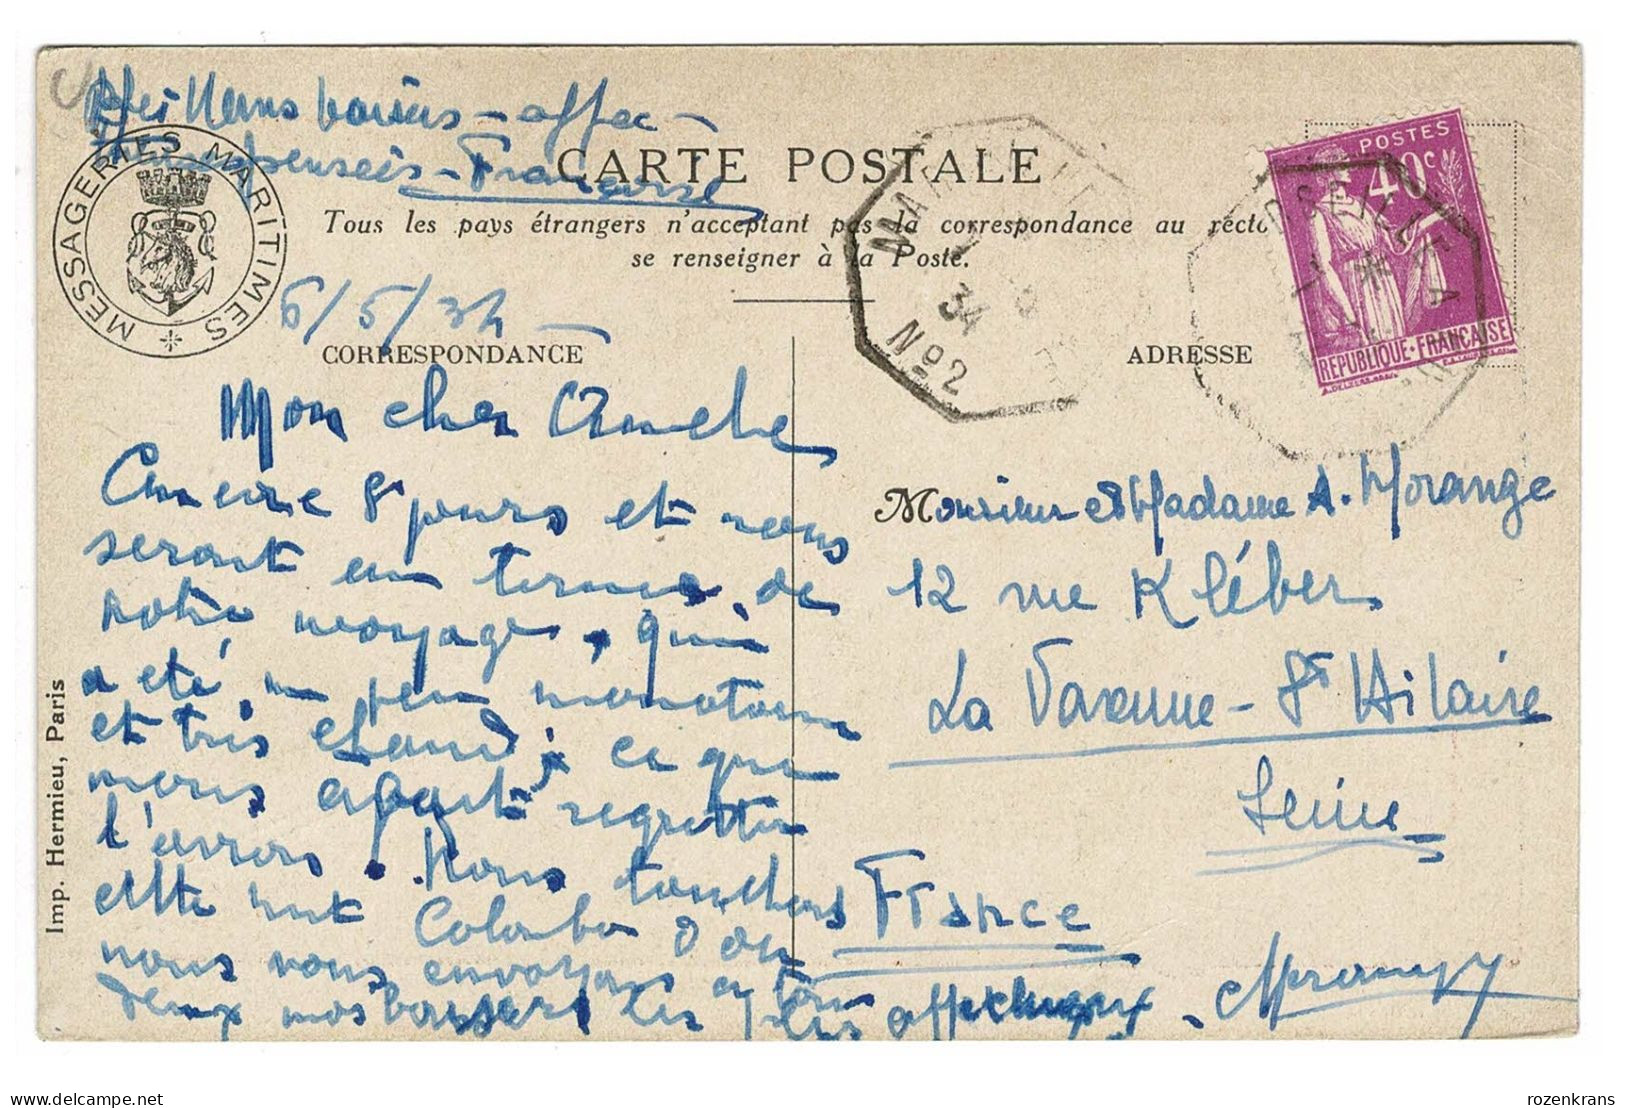 Meilleurs baisers - affec-
tueuses pensées - Françoise
MESSAGERIES MARITIMES
CARTE POSTALE
Tous les pays étrangers n'acceptant pas la correspondance au recto
se renseigner à la Poste.
6/5/34
CORRESPONDANCE
ADRESSE
POSTES
40c
RÉPUBLIQUE·FRANÇAISE
34
No2
Mon cher
8 jours et nous
seront en terme de
notre voyage, qui
a été un peu monotone
et très chaud, ce que
l'avions. Nous touchons
cette nuit Colombo d'où
nous vous envoyons tous
deux nos baisers les plus affectueux.
Monsieur et Madame A. Morange
12 rue Kléber
La Varenne - St Hilaire
Seine
France
Imp. Hermieu, Paris
rozenkrans